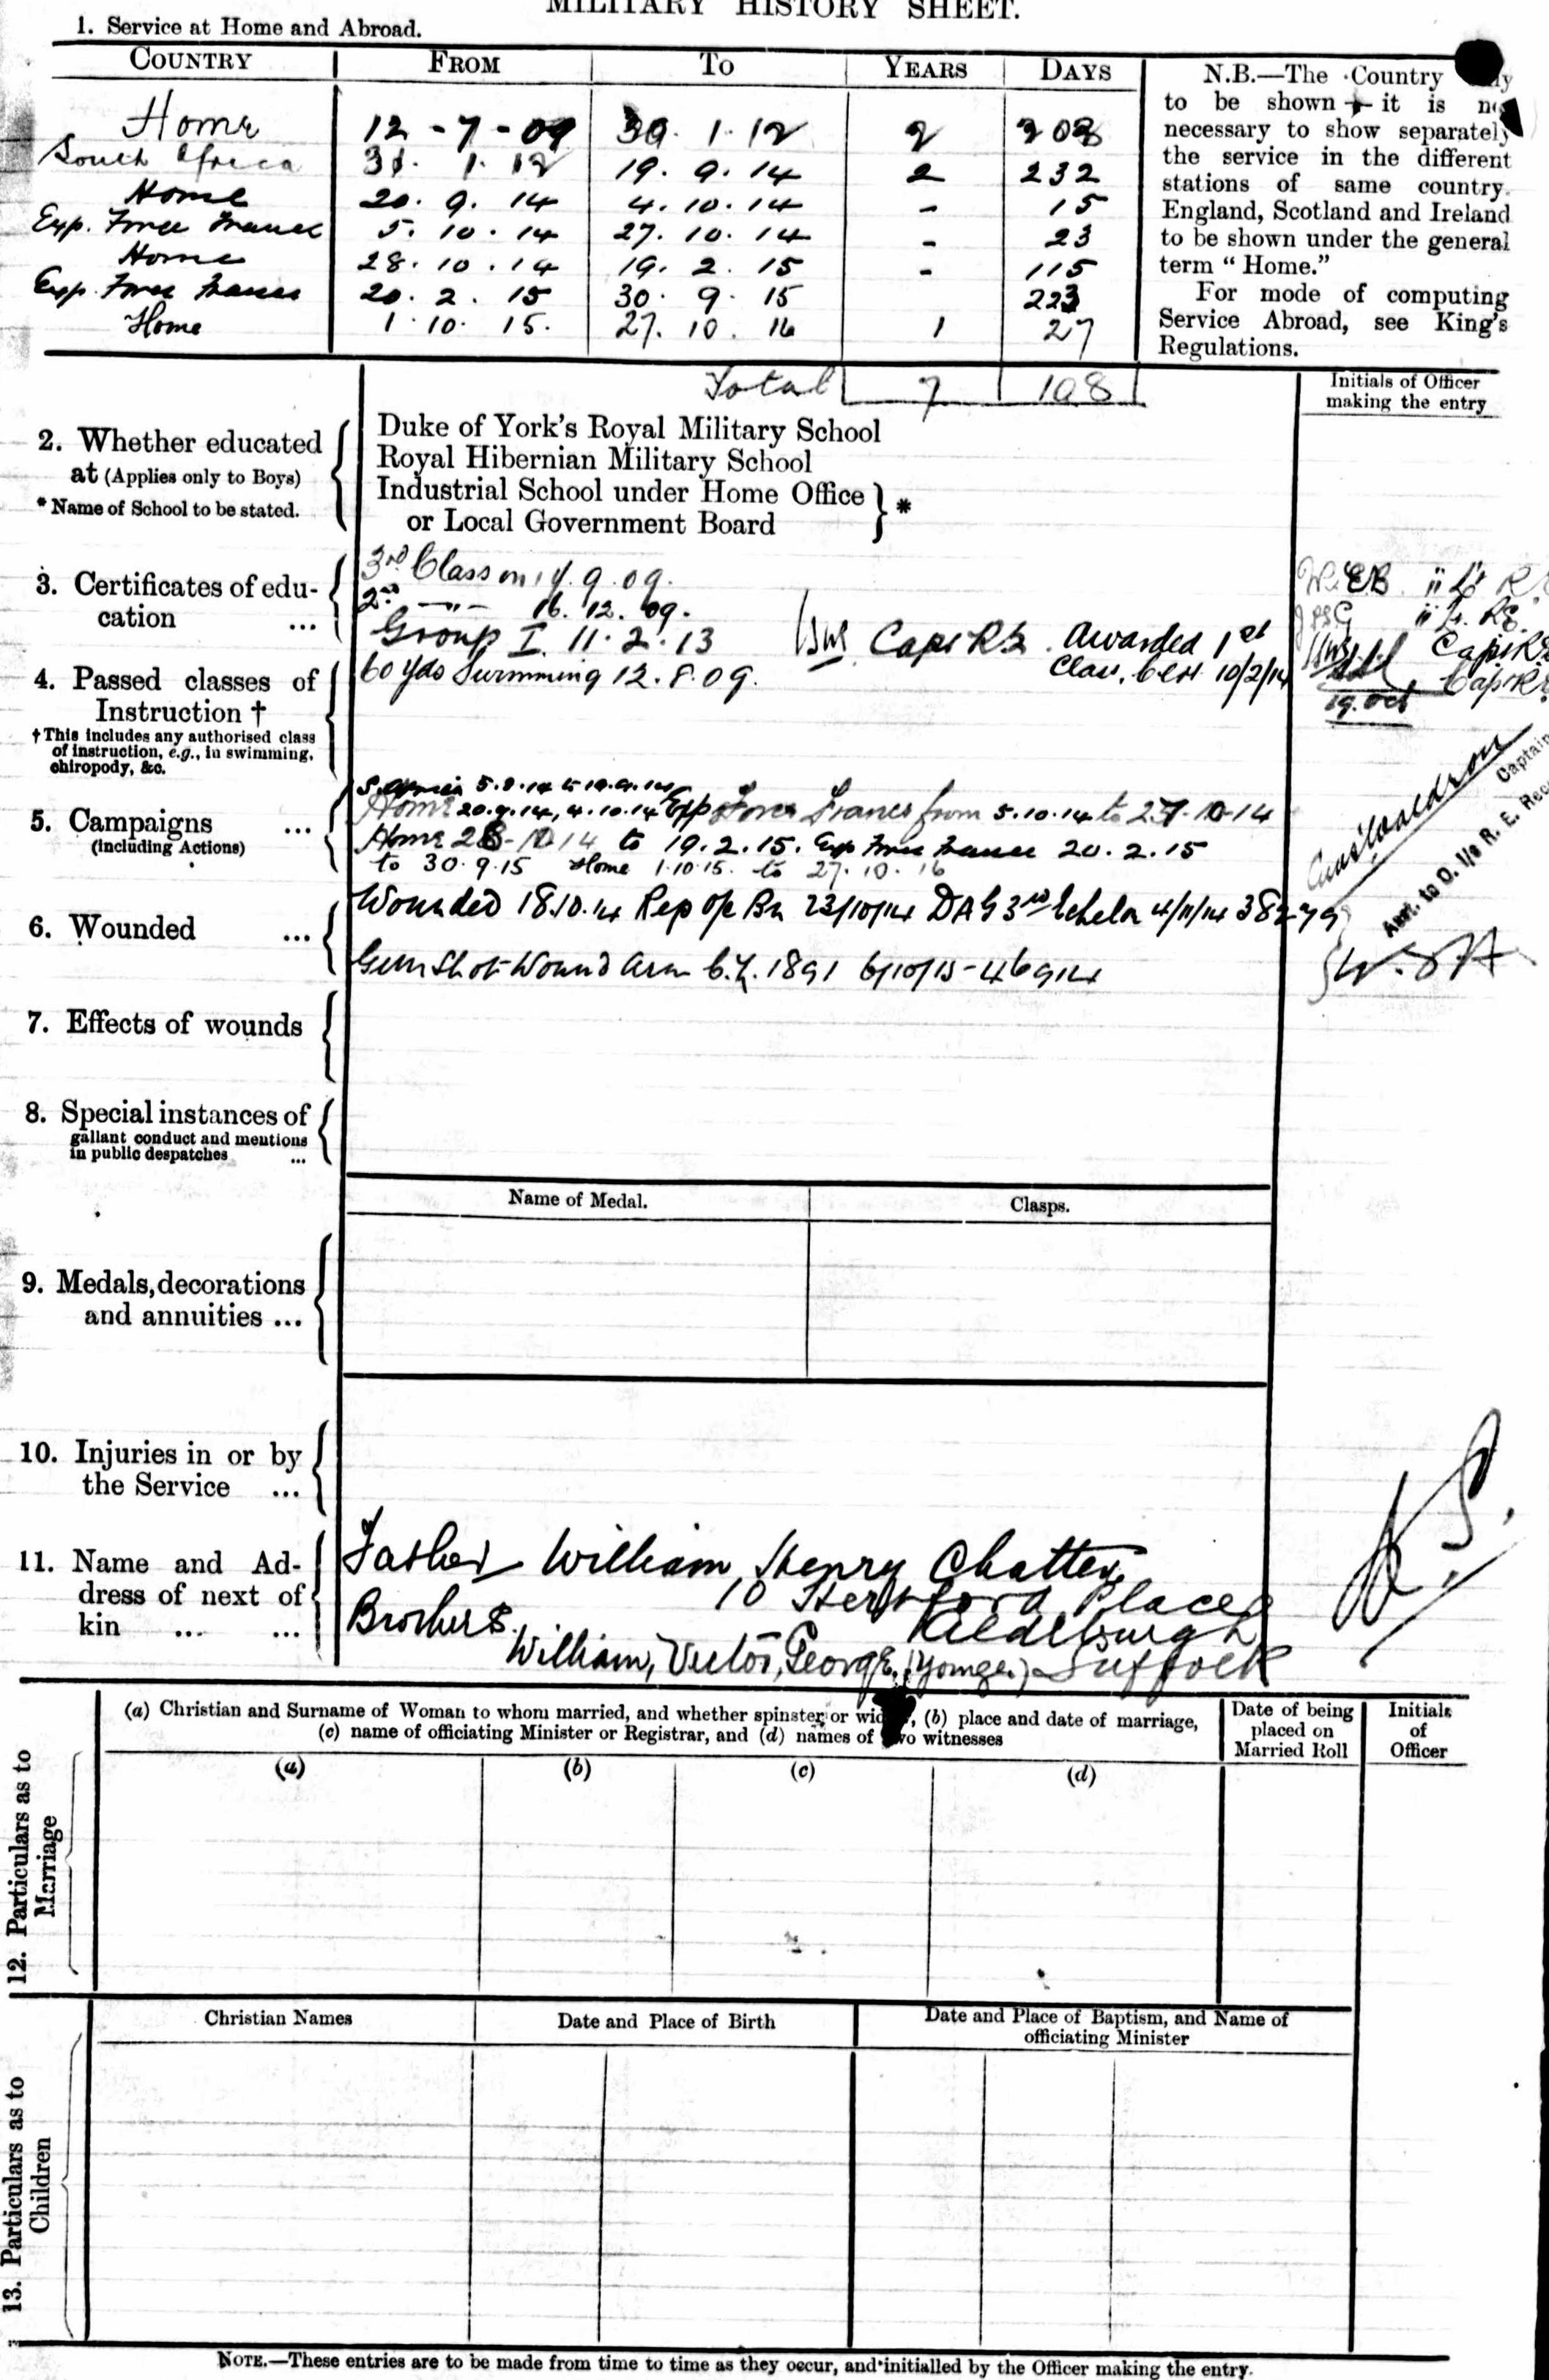 MILITARY HISTORY SHEET.
1. Service at Home and Abroad.
COUNTRY FROM TO YEARS DAYS
Home 12 - 7 - 09 30. 1. 12 2 203
South Africa 31. 1. 12 19. 9. 14 2 232
Home 20. 9. 14 4. 10. 14 - 15
Exp. Force France 5. 10. 14 27. 10. 14 - 23
Home 28. 10. 14 19. 2. 15 - 115
Exp. Force France 20. 2. 15 30. 9. 15 223
Home 1. 10. 15. 27. 10. 16 1 27
Total 7 108
N.B.—The Country
to be shown - it is
necessary to show separately
the service in the different
stations of same country.
England, Scotland and Ireland
to be shown under the general
term "Home."
For mode of computing
Service Abroad, see King's
Regulations.
Initials of Officer
making the entry
2. Whether educated
at (Applies only to Boys)
* Name of School to be stated.
Duke of York's Royal Military School
Royal Hibernian Military School
Industrial School under Home Office
or Local Government Board } *
3. Certificates of edu-
cation ...
3rd Class on 9. 09.
2nd —"— 16. 12. 09.
Group I. 11. 2. 13 Capt RE. Awarded 1st
Class. Cert 10/2/14
4. Passed classes of
Instruction †
† This includes any authorised class
of instruction, e.g., in swimming,
chiropody, &c.
60 yds Swimming 12. 8. 09.
Capt RE
Capt RE
19. Oct
5. Campaigns ...
(including Actions)
S. Africa 5. 8. 14 to 19. 9. 14
Home 20. 9. 14, 4. 10. 14 Exp Force France from 5. 10. 14 to 27. 10. 14
Home 28. 10. 14 to 19. 2. 15. Exp Force France 20. 2. 15
to 30. 9. 15 Home 1. 10. 15. to 27. 10. 16
Captain
6. Wounded ...
Wounded 18.10.14 Rep Bn 23/10/14 DAG 3rd Echelon 4/11/14 38279
Gun Shot Wound Arm 1891 6/10/15 - 46914
7. Effects of wounds
8. Special instances of
gallant conduct and mentions
in public despatches ...
Name of Medal. Clasps.
9. Medals, decorations
and annuities ...
10. Injuries in or by
the Service ...
11. Name and Ad-
dress of next of
kin ... ...
Father William Henry Chatten
10 Hertford Place
Brothers. Aldeburgh
William, Victor, George, (younger) Suffolk
12. Particulars as to
Marriage
(a) Christian and Surname of Woman to whom married, and whether spinster or , (b) place and date of marriage,
(c) name of officiating Minister or Registrar, and (d) names of witnesses
Date of being
placed on
Married Roll
Initials
of
Officer
(a) (b) (c) (d)
13. Particulars as to
Children
Christian Names Date and Place of Birth Date and Place of Baptism, and Name of
officiating Minister
NOTE.—These entries are to be made from time to time as they occur, and initialled by the Officer making the entry.